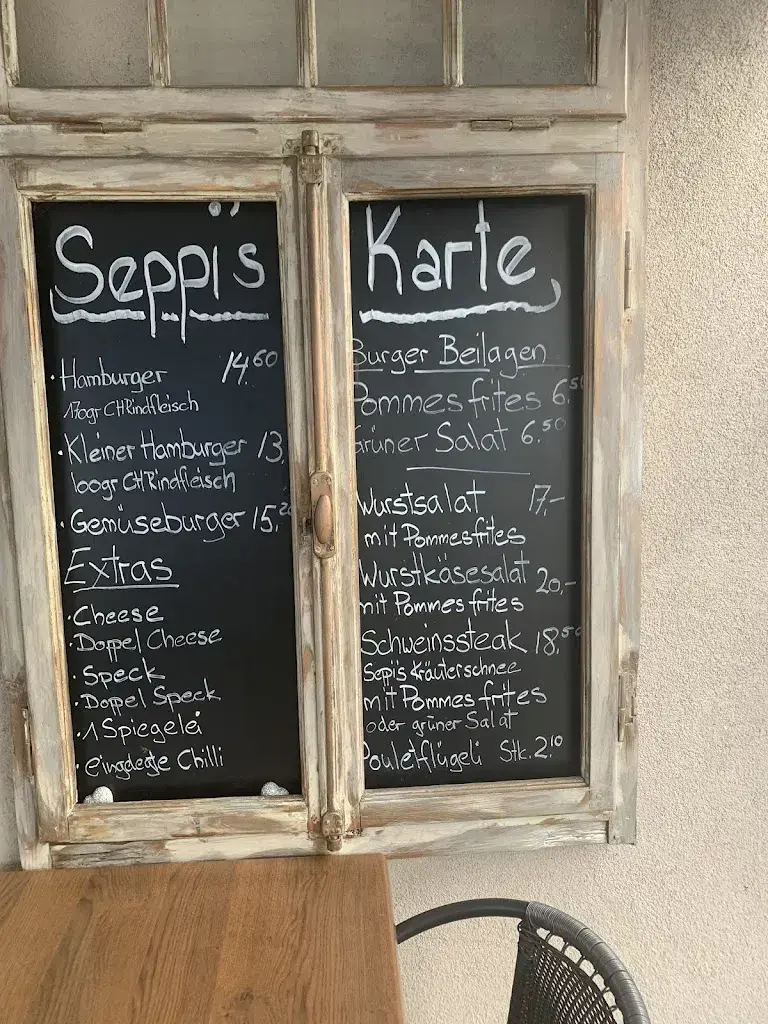 Seppi's
· Hamburger 14.60
170gr CH Rindfleisch
· Kleiner Hamburger 13.
100gr CH Rindfleisch
· Gemüseburger 15.20
Extras
· Cheese
· Doppel Cheese
· Speck
· Doppel Speck
· 1 Spiegelei
· eingelegte Chilli
Karte
Burger Beilagen
Pommes frites 6.50
Grüner Salat 6.50
Wurstsalat 17.-
mit Pommesfrites
Wurstkäsesalat 20.-
mit Pommes frites
Schweinssteak 18.50
Sepis Kräuterschnee
mit Pommes frites
oder grüner Salat
Pouletflügeli Stk. 2.10